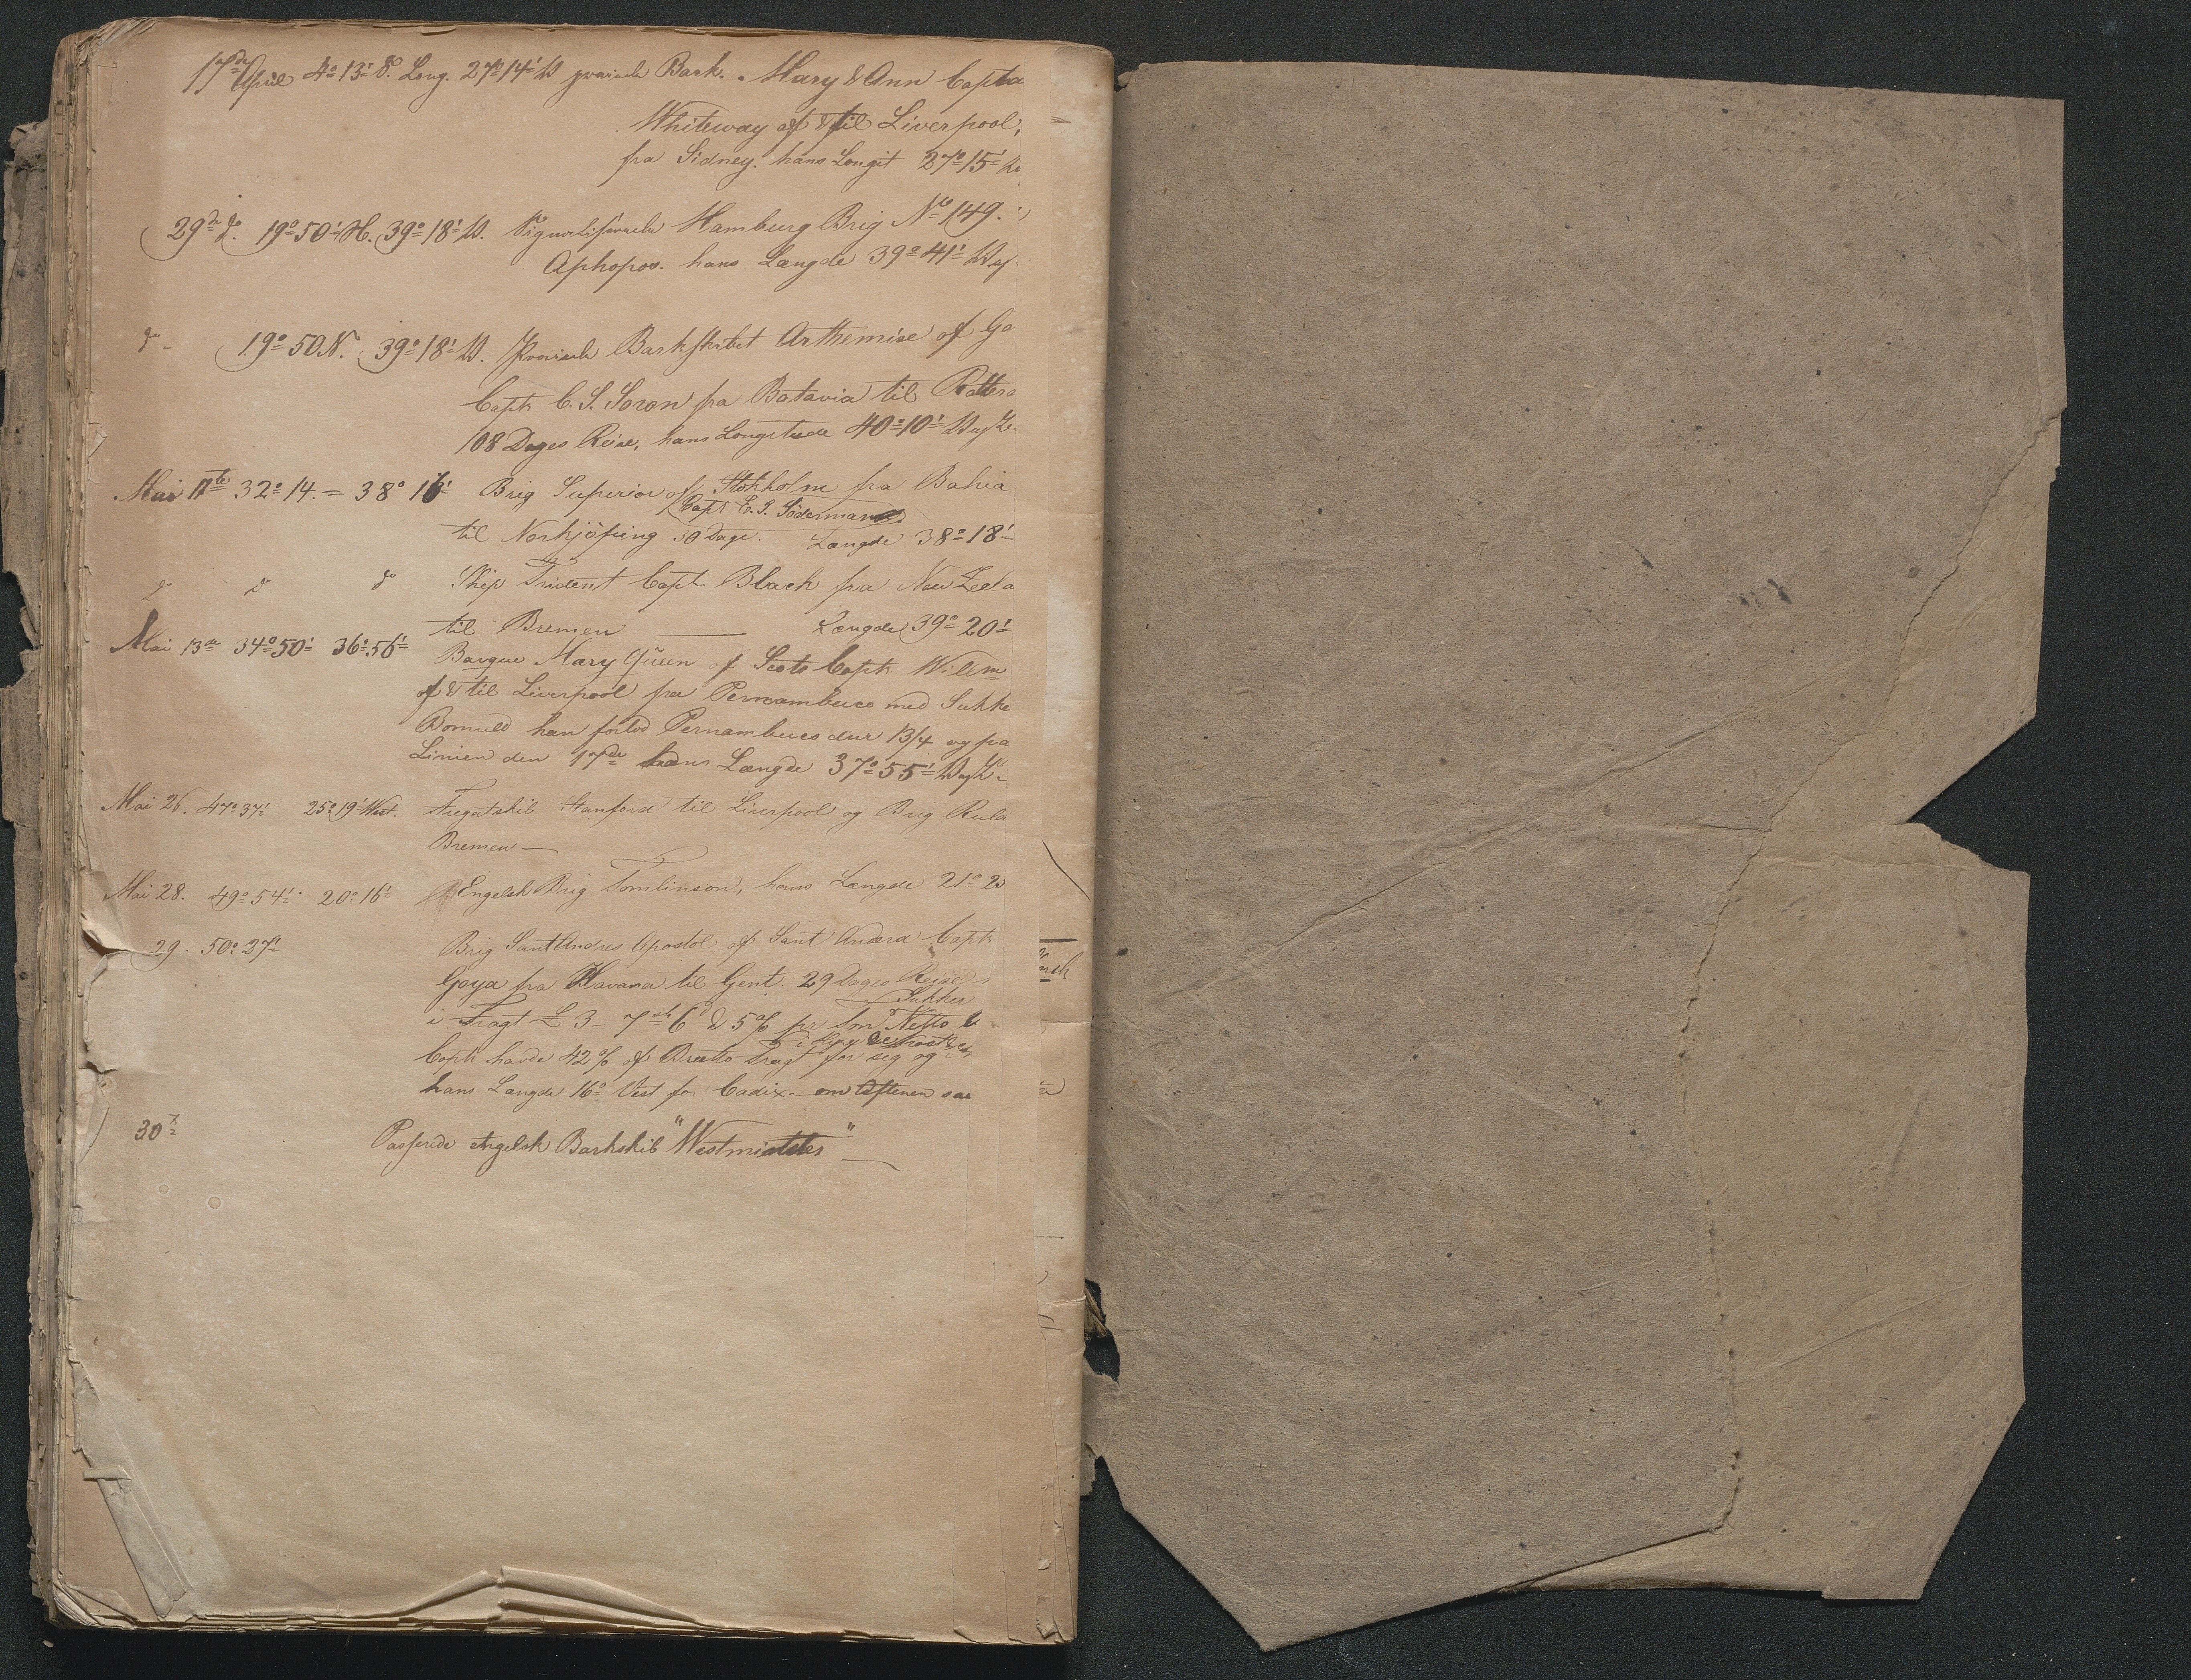 17de April 4° 13' S. Long. 27° 14' W praiede Bark. Mary & Ann Capta
Whiteway af & til Liverpool,
fra Sidney. hans Longit 27° 15' W
29de do. 19° 50' N. 39° 18' W. Signaliserede Hamburg Brig No 149.
Aphopos. hans Længde 39° 41' W af
do - 19° 50 N. 39° 18' W. Praiede Barkskibet Arthemise af Go
Captn C. S. Soron fra Batavia til Rottera
108 Dages Reise, hans Longitude 40° 10' W af
Mai 11te 32° 14. = 38° 16' Brig Superior af Stokholm fra Bahia
Capt C. G. Söderman
til Norkjöping 50 Dage. Længde 38° 18'
do do do Skip Trident Capt. Black fra New Zeela
til Bremen — Længde 39° 20'
Mai 13de 34° 50' 36° 56' Barque Mary Queen of Scots Captn Willm
af & til Liverpool fra Pernambuco med Sukke
Bomuld han forlod Pernambuco dur 13/4 og fra
Linien den 17de hans Længde 37° 55' W af
Mai 26. 47° 37' 25° 19' West. Fregatskib Stanford til Liverpool og Brig Rula
Bremen —
Mai 28. 49° 54' 20° 16' Engelsk Brig Tomlinson, hans Længde 21° 23
29. 50° 27' Brig Sant Andres Apostol af Sant Andera Captn
Goya fra Havana til Gent. 29 Dages Reise
Sukker
i Fragt £ 3 - 7 sh 6 d & 5 % pr Ton Netto
Captn havde 42 % af Brutto Fragt for seg og
hans Længde 16° Vest for Cadix - om Aftenen saa
30te Passerede engelsk Barkskib "Westminster" —